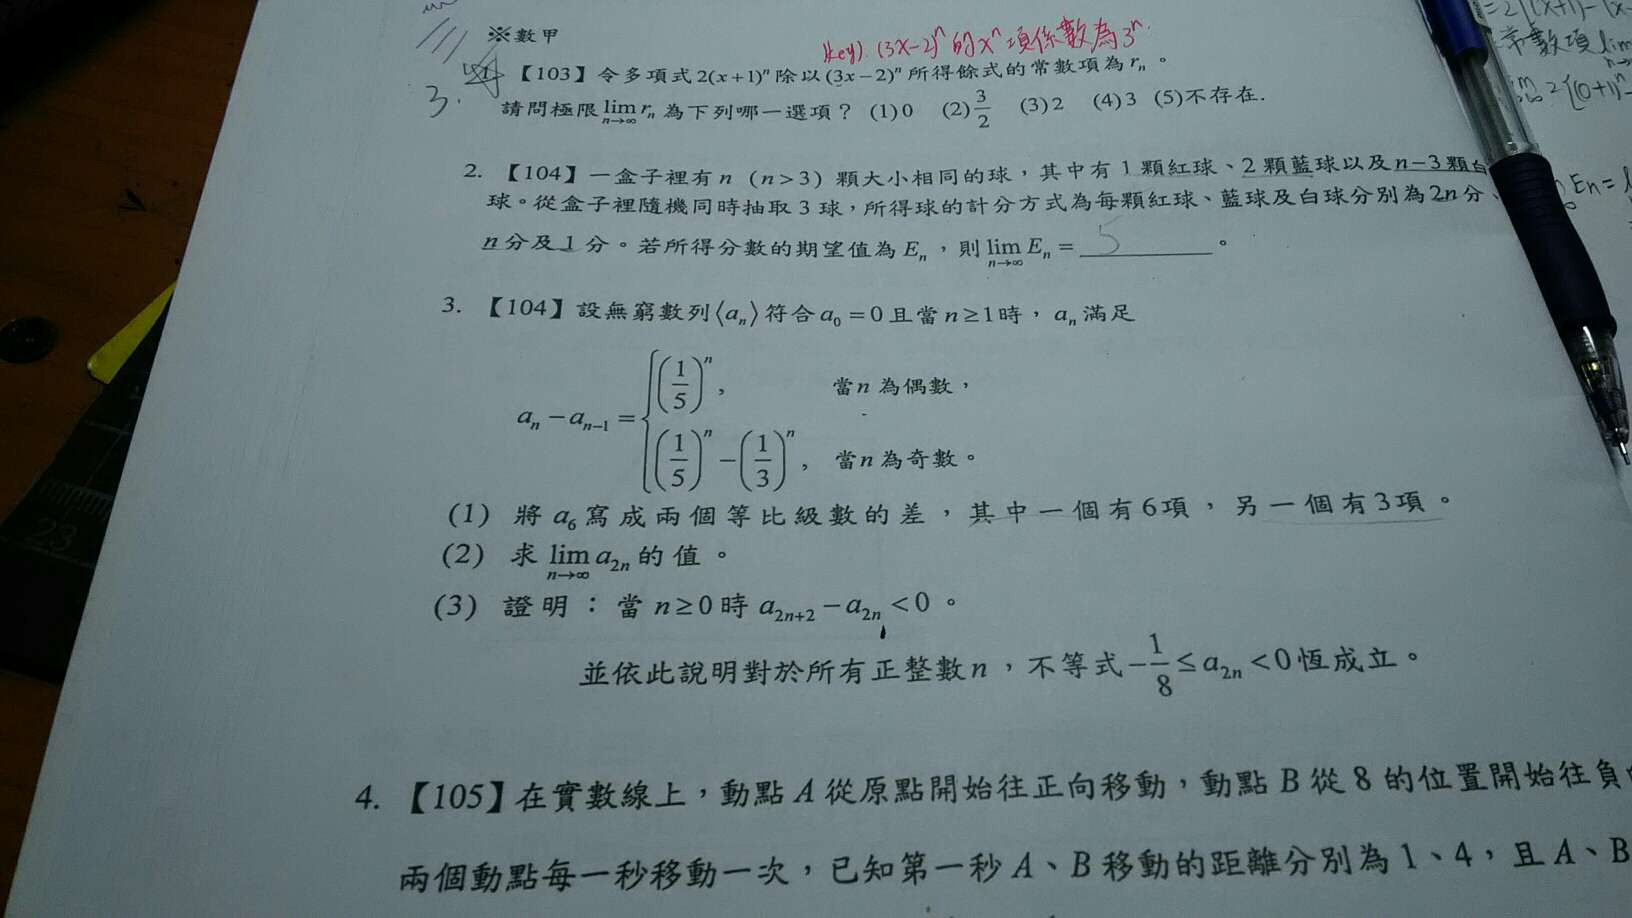 ※數甲
key). (3x-2)ⁿ的xⁿ項係數為3ⁿ.
3. 【103】令多項式 2(x+1)ⁿ 除以 (3x-2)ⁿ 所得餘式的常數項為 rₙ。
請問極限 lim n→∞ rₙ 為下列哪一選項？ (1) 0 (2) 3/2 (3) 2 (4) 3 (5)不存在.
2. 【104】一盒子裡有 n (n>3) 顆大小相同的球，其中有 1 顆紅球、2 顆藍球以及 n-3 顆白
球。從盒子裡隨機同時抽取 3 球，所得球的計分方式為每顆紅球、藍球及白球分別為 2n 分、
n 分及 1 分。若所得分數的期望值為 Eₙ，則 lim n→∞ Eₙ = 5 。
3. 【104】設無窮數列⟨aₙ⟩符合 a₀ = 0 且當 n ≥ 1 時，aₙ 滿足
aₙ - aₙ₋₁ = { (1/5)ⁿ, 當 n 為偶數，
(1/5)ⁿ - (1/3)ⁿ, 當 n 為奇數。
(1) 將 a₆ 寫成兩個等比級數的差，其中一個有6項，另一個有3項。
(2) 求 lim n→∞ a₂ₙ 的值。
(3) 證明：當 n ≥ 0 時 a₂ₙ₊₂ - a₂ₙ < 0。
並依此說明對於所有正整數 n，不等式 -1/8 ≤ a₂ₙ < 0 恆成立。
4. 【105】在實數線上，動點 A 從原點開始往正向移動，動點 B 從 8 的位置開始往負
兩個動點每一秒移動一次，已知第一秒 A、B 移動的距離分別為 1、4，且 A、B
常數項 lim
Eₙ =
23